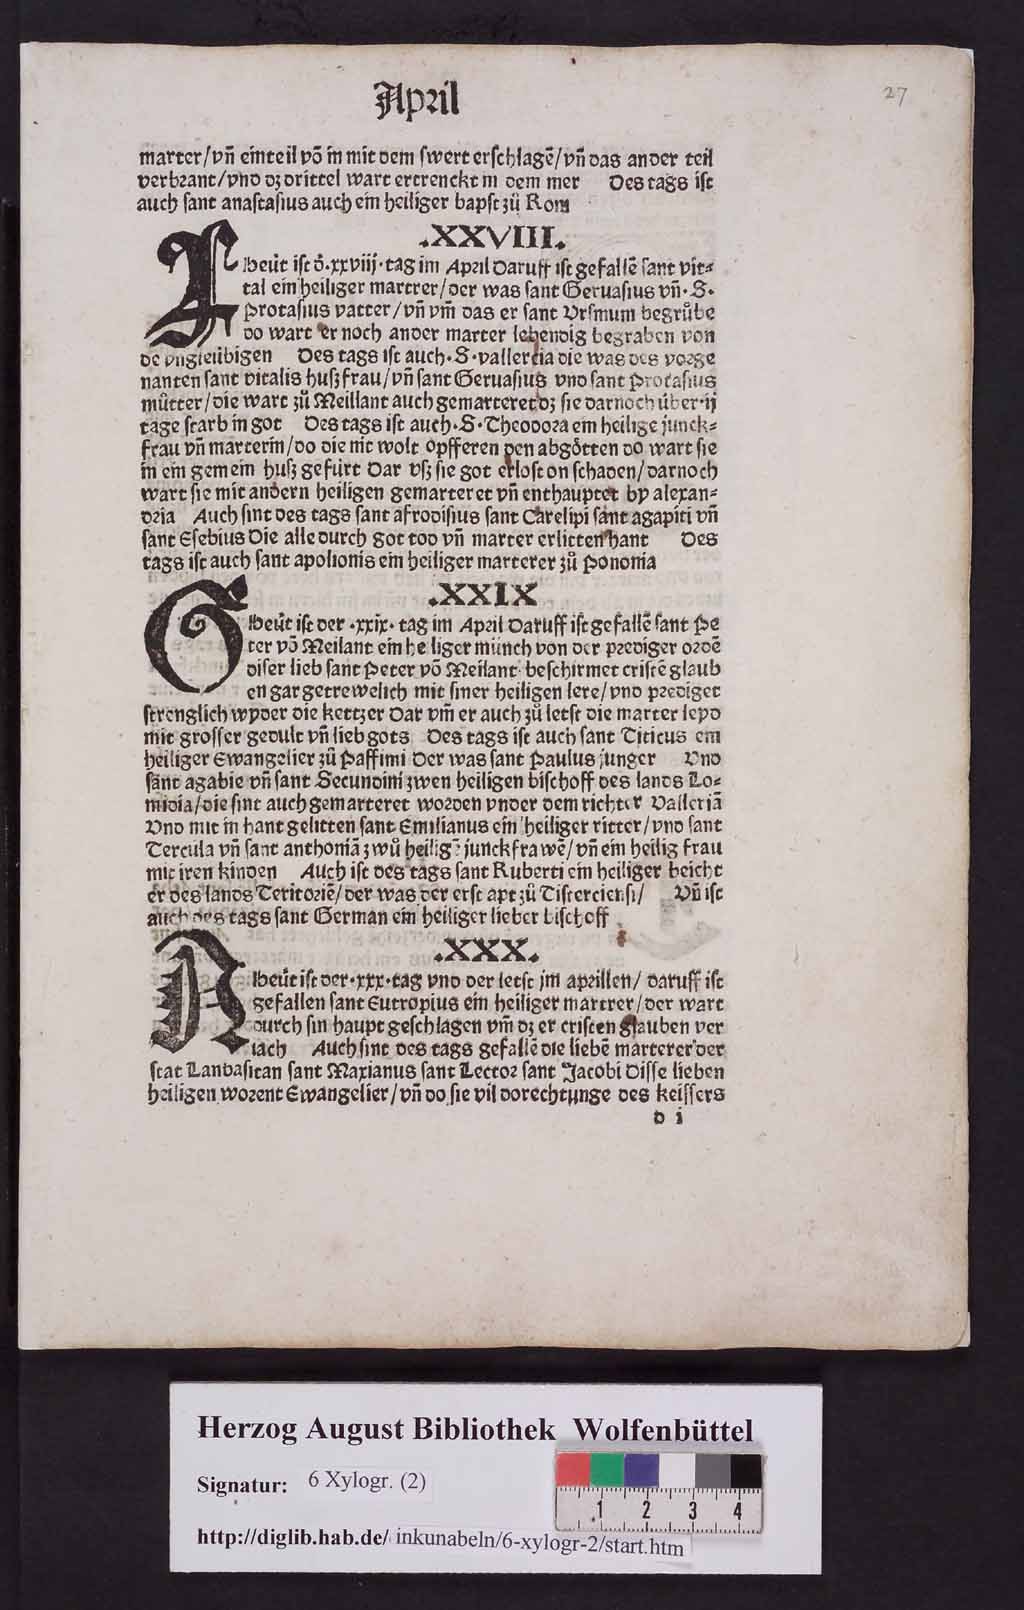 April
27
marter/vñ einteil võ in mit dem swert erschlagē/vñ das ander teil
verbrant/vnd dz drittel wart ertrenckt in dem mer Des tags ist
auch sant anastasius auch ein heiliger bapst zů Rom
.XXVIII.
heüt ist d̄.xxviij.tag im April Daruff ist gefallē sant vit-
tal ein heiliger martrer/der was sant Geruasius vñ.S.
Prothasius vatter/vñ vm̄ das er sant Vrsinum begrůbe
do wart er noch ander marter lebendig begraben von
dē vngleübigen Des tags ist auch.S.valleria die was des vorge
nanten sant vitalis husz frau/vñ sant Geruasius vnd sant Protasius
můtter/die wart zů Meillant auch gemarteret dz sie darnoch über.ij
tage starb in got Des tags ist auch.S.Theodora ein heilige junck-
frau vñ marterin/do die nit wolt Opfferen den abgötten do wart sie
in ein gemein husz gefürt Dar vsz sie got erlost on schaden/darnoch
wart sie mit andern heiligen gemarteret vñ enthauptet by alexan-
dria Auch sint des tags sant afrodisius sant Carelipi sant agapiti vñ
sant Esebius Die alle durch got tod vñ marter erlitten hant Des
tags ist auch sant apolionis ein heiliger marterer zů Pononia
.XXIX
G heüt ist der .xxix. tag im April Daruff ist gefallē sant Pe
ter võ Meilant ein heiliger münch von der prediger ordē
diser lieb sant Peter võ Meilant beschirmet cristē glaub
en gar getrewelich mit siner heiligen lere/vnd prediget
strenglich wyder die kettzer Dar vm̄ er auch zů letst die marter leyd
mit grosser gedult vñ lieb gots Des tags ist auch sant Titicus ein
heiliger Ewangelier zů Paffimi Der was sant Paulus junger Vnd
sant agabie vñ sant Secundini zwen heiligen bischoff des lands Lo-
midia/die sint auch gemarteret worden vnder dem richter Valleriā
Vnd mit in hant gelitten sant Emilianus ein heiliger ritter/vnd sant
Tercula vñ sant anthoniā zwů heiligē junckfrawē/vñ ein heilig frau
mit iren kinden Auch ist des tags sant Ruberti ein heiliger beicht
er des lands Teritoriē/der was der erst apt zů Tisterciensi/ Vñ ist
auch des tags sant German ein heiliger lieber bischoff
.XXX.
A heüt ist der.xxx.tag vnd der letst jm aprillen/daruff ist
gefallen sant Eutropius ein heiliger martrer/der wart
durch sin haupt geschlagen vm̄ dz er cristen glauben ver
iach Auch sint des tags gefallē die liebē marterer der
stat Landasitan sant Maxianus sant Lector sant Jacobi Disse lieben
heiligen worent Ewangelier/vñ do sie vil dorechtunge des keissers
d i
Herzog August Bibliothek Wolfenbüttel
Signatur: 6 Xylogr. (2)
1 2 3 4
http://diglib.hab.de/inkunabeln/6-xylogr-2/start.htm